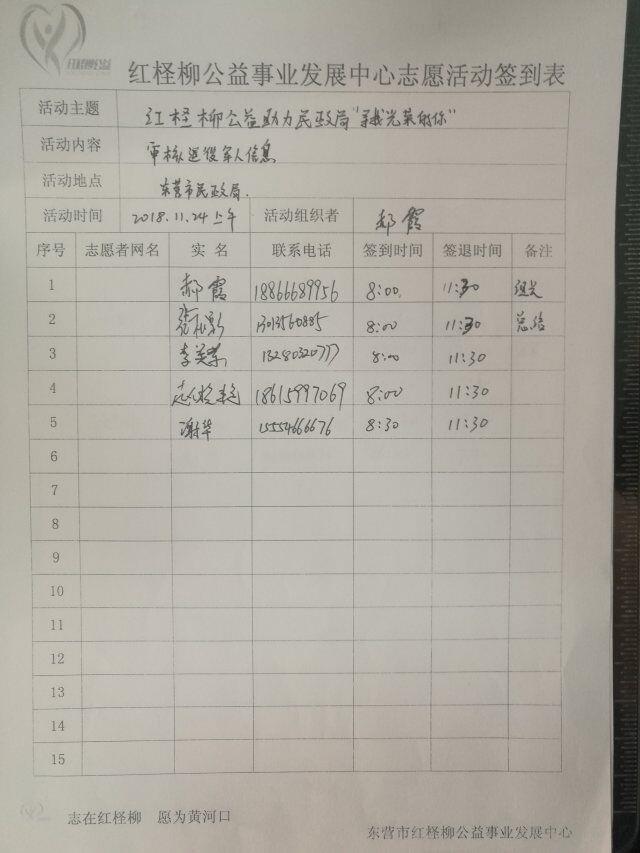 红柽柳公益
红柽柳公益事业发展中心志愿活动签到表
活动主题 红柽柳公益助力民政局"寻找光荣的你"
活动内容 审核退役军人信息
活动地点 东营市民政局.
活动时间 2018.11.24上午 活动组织者 郝霞
序号 志愿者网名 实 名 联系电话 签到时间 签退时间 备注
1 郝霞 18866689956 8:00 11:30
2 8:00 11:30 总结
3 李美荣 13280320777 8:00 11:30
4 18615997069 8:00 11:30
5 谢华 15554666676 8:30 11:30
6
7
8
9
10
11
12
13
14
15
志在红柽柳 愿为黄河口
东营市红柽柳公益事业发展中心